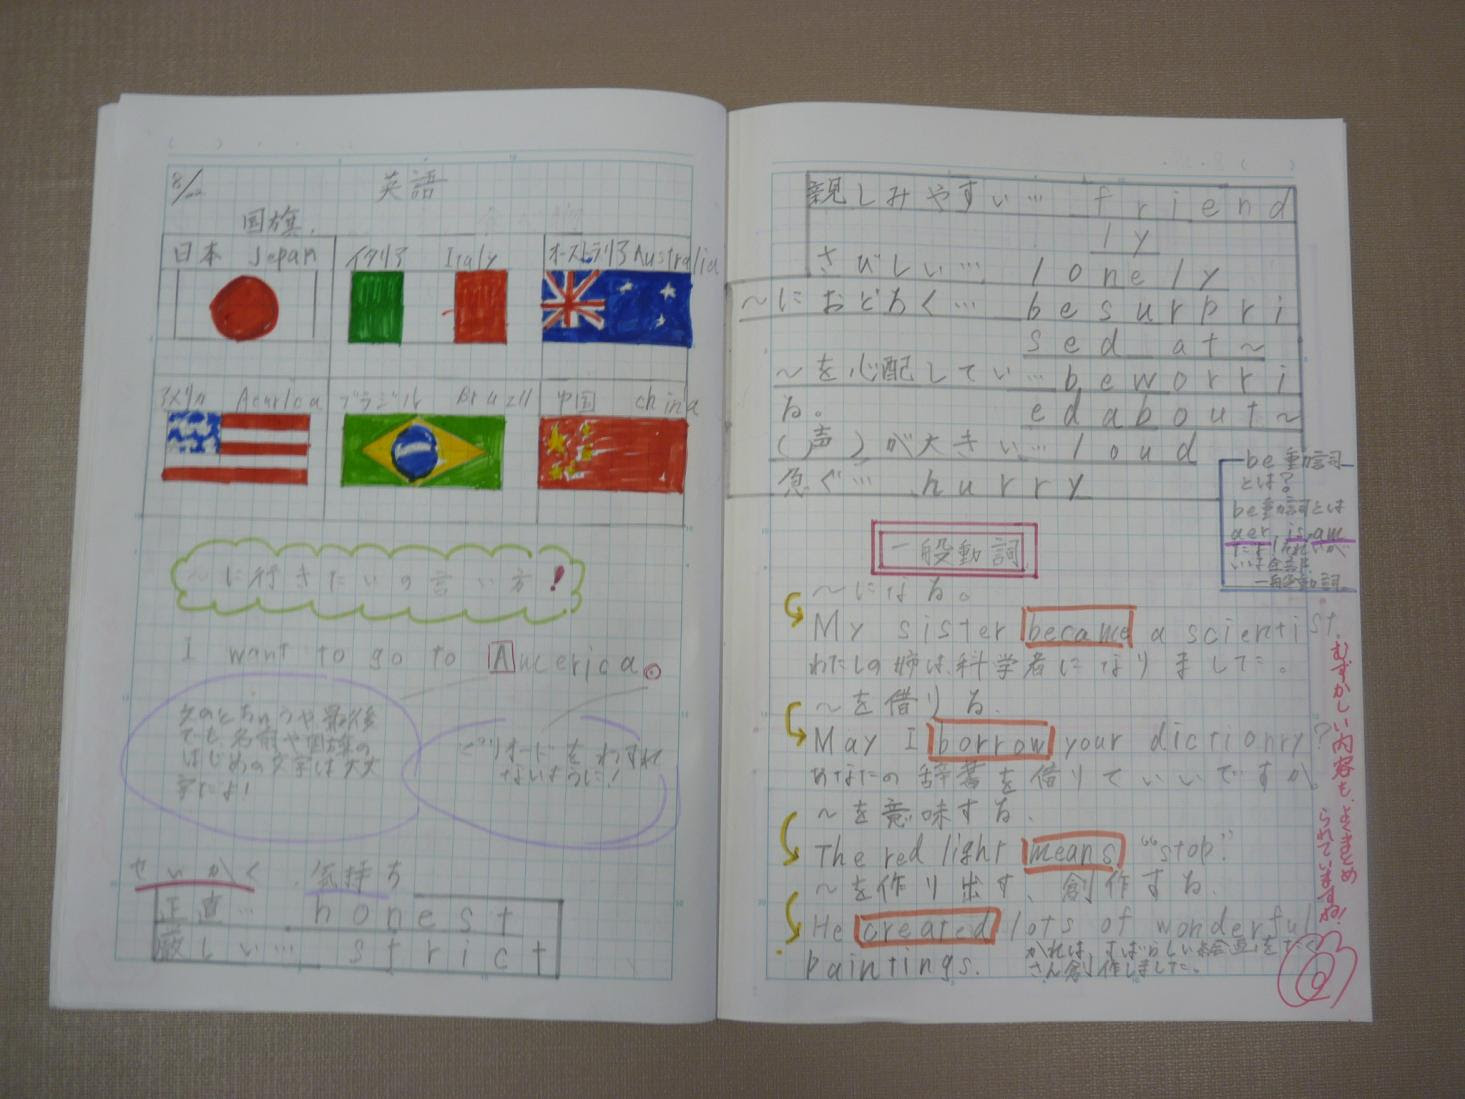 8/22
英語
国旗.
日本 Japan
イタリア Italy
オーストラリア Australia
アメリカ
ブラジル Brazil
中国 china
～に行きたいの言い方!
I want to go to America.
でも名前や国旗の
はじめの文字は大文
字だよ!
ピリオードをわすれ
ないように!
せいかく 気持ち
正直… honest
厳しい… strict
親しみやすい… friend
ly
さびしい… lonely
～におどろく… be surpri
sed at～
～を心配してい… be worri
る。 ed about～
(声)が大きい… loud
急ぐ… hurry
be動詞
とは?
be動詞とは
aer is am
だよ!それいが
いは全部
一般動詞
一般動詞
～になる。
My sister became a scientist.
わたしの姉は科学者になりました。
～を借りる.
May I borrow your dictionry?
あなたの辞書を借りていいですか。
～を意味する.
The red light means "stop."
～を作り出す、創作する.
He created lots of wonderful
paintings.
かれは、すばらしい絵画をたく
さん創作しました。
むずかしい内容も、よくまとめ
られていますね!